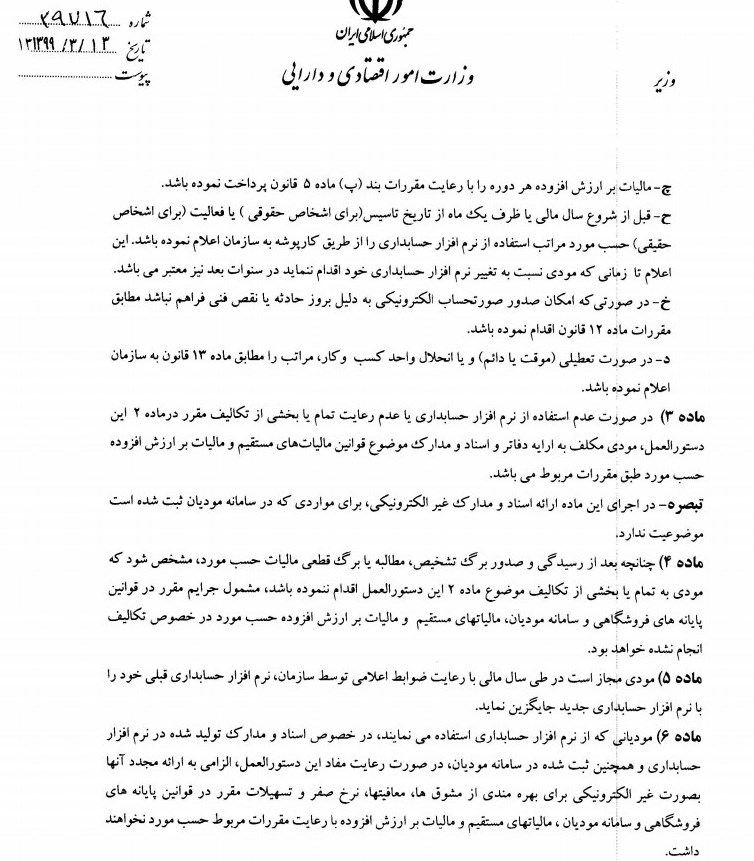 شماره ۲۹۷۱۶
تاریخ ۱۳۹۹/۳/۱۳
پیوست
جمهوری اسلامی ایران
وزارت امور اقتصادی و دارایی
وزیر
چ- مالیات بر ارزش افزوده هر دوره را با رعایت مقررات بند (پ) ماده ۵ قانون پرداخت نموده باشد.
ح- قبل از شروع سال مالی یا ظرف یک ماه از تاریخ تاسیس(برای اشخاص حقوقی ) یا فعالیت (برای اشخاص
حقیقی) حسب مورد مراتب استفاده از نرم افزار حسابداری را از طریق کارپوشه به سازمان اعلام نموده باشد. این
اعلام تا زمانی که مودی نسبت به تغییر نرم افزار حسابداری خود اقدام ننماید در سنوات بعد نیز معتبر می باشد.
خ- در صورتی‌که امکان صدور صورتحساب الکترونیکی به دلیل بروز حادثه یا نقص فنی فراهم نباشد مطابق
مقررات ماده ۱۲ قانون اقدام نموده باشد.
د- در صورت تعطیلی (موقت یا دائم) و یا انحلال واحد کسب وکار، مراتب را مطابق ماده ۱۳ قانون به سازمان
اعلام نموده باشد.
ماده ۳) در صورت عدم استفاده از نرم افزار حسابداری یا عدم رعایت تمام یا بخشی از تکالیف مقرر درماده ۲ این
دستورالعمل، مودی مکلف به ارایه دفاتر و اسناد و مدارک موضوع قوانین مالیات‌های مستقیم و مالیات بر ارزش افزوده
حسب مورد طبق مقررات مربوط می باشد.
تبصره- در اجرای این ماده ارائه اسناد و مدارک غیر الکترونیکی، برای مواردی که در سامانه مودیان ثبت شده است
موضوعیت ندارد.
ماده ۴) چنانچه بعد از رسیدگی و صدور برگ تشخیص، مطالبه یا برگ قطعی مالیات حسب مورد، مشخص شود که
مودی به تمام یا بخشی از تکالیف موضوع ماده ۲ این دستورالعمل اقدام ننموده باشد، مشمول جرایم مقرر در قوانین
پایانه های فروشگاهی و سامانه مودیان، مالیاتهای مستقیم و مالیات بر ارزش افزوده حسب مورد در خصوص تکالیف
انجام نشده خواهد بود.
ماده ۵) مودی مجاز است در طی سال مالی با رعایت ضوابط اعلامی توسط سازمان، نرم افزار حسابداری قبلی خود را
با نرم افزار حسابداری جدید جایگزین نماید.
ماده ۶) مودیانی که از نرم افزار حسابداری استفاده می نمایند، در خصوص اسناد و مدارک تولید شده در نرم افزار
حسابداری و همچنین ثبت شده در سامانه مودیان، در صورت رعایت مفاد این دستورالعمل، الزامی به ارائه مجدد آنها
بصورت غیر الکترونیکی برای بهره مندی از مشوق ها، معافیتها، نرخ صفر و تسهیلات مقرر در قوانین پایانه های
فروشگاهی و سامانه مودیان ، مالیاتهای مستقیم و مالیات بر ارزش افزوده با رعایت مقررات مربوط حسب مورد نخواهند
داشت.